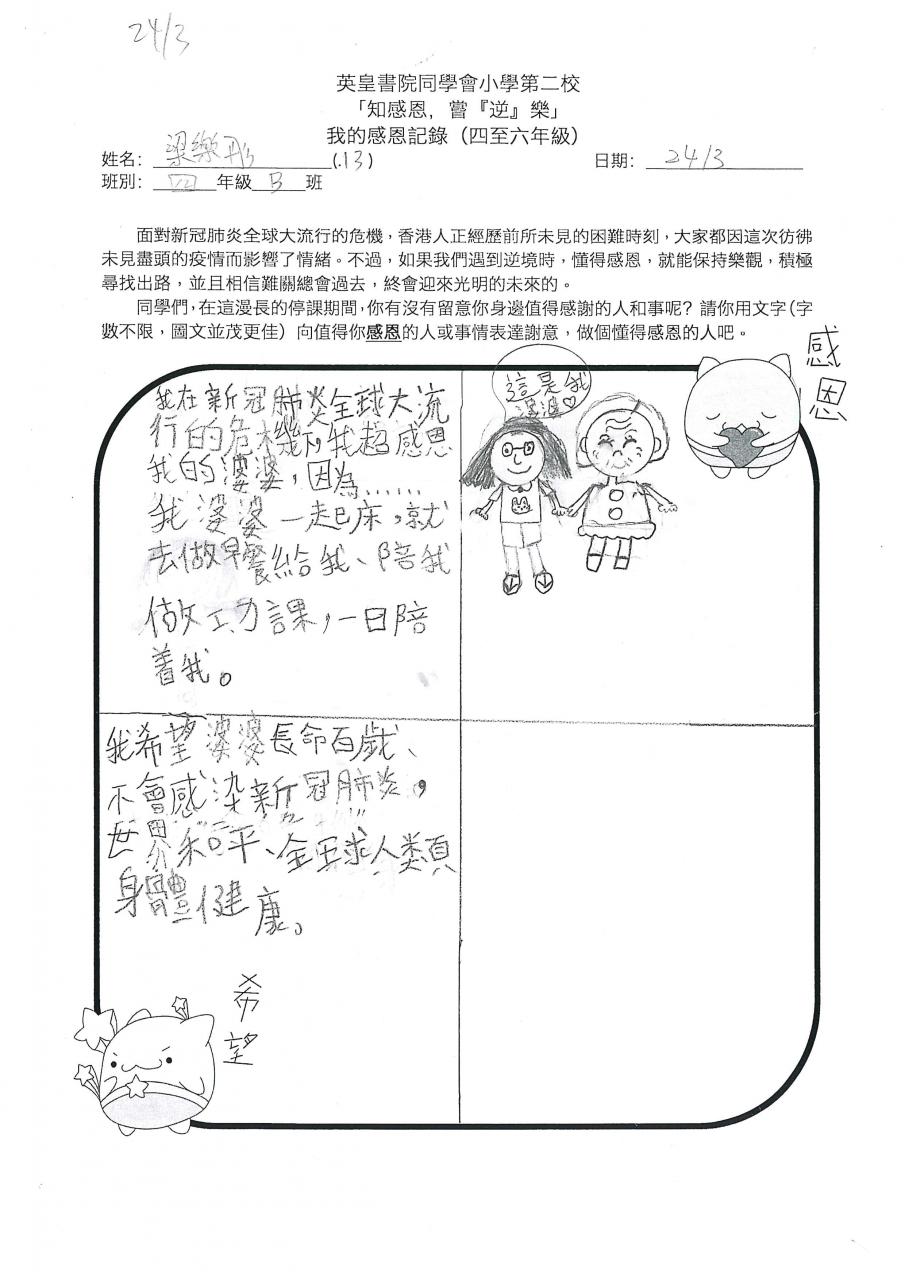 24/3
英皇書院同學會小學第二校
「知感恩，嘗『逆』樂」
我的感恩記錄（四至六年級）
姓名：梁樂彤(13)
日期：24/3
班別：四年級B班
面對新冠肺炎全球大流行的危機，香港人正經歷前所未見的困難時刻，大家都因這次彷彿
未見盡頭的疫情而影響了情緒。不過，如果我們遇到逆境時，懂得感恩，就能保持樂觀，積極
尋找出路，並且相信難關總會過去，終會迎來光明的未來的。
同學們，在這漫長的停課期間，你有沒有留意你身邊值得感謝的人和事呢？請你用文字（字
數不限，圖文並茂更佳）向值得你感恩的人或事情表達謝意，做個懂得感恩的人吧。
感恩
我在新冠肺炎全球大流
行的危機下，我超感恩
我的婆婆，因為……
我婆婆一起床，就
去做早餐給我、陪我
做工功課，一日陪
着我。
這是我
婆婆♡
我希望婆婆長命百歲、
不會感染新冠肺炎，
世界和平、全球人類
身體健康。
希望